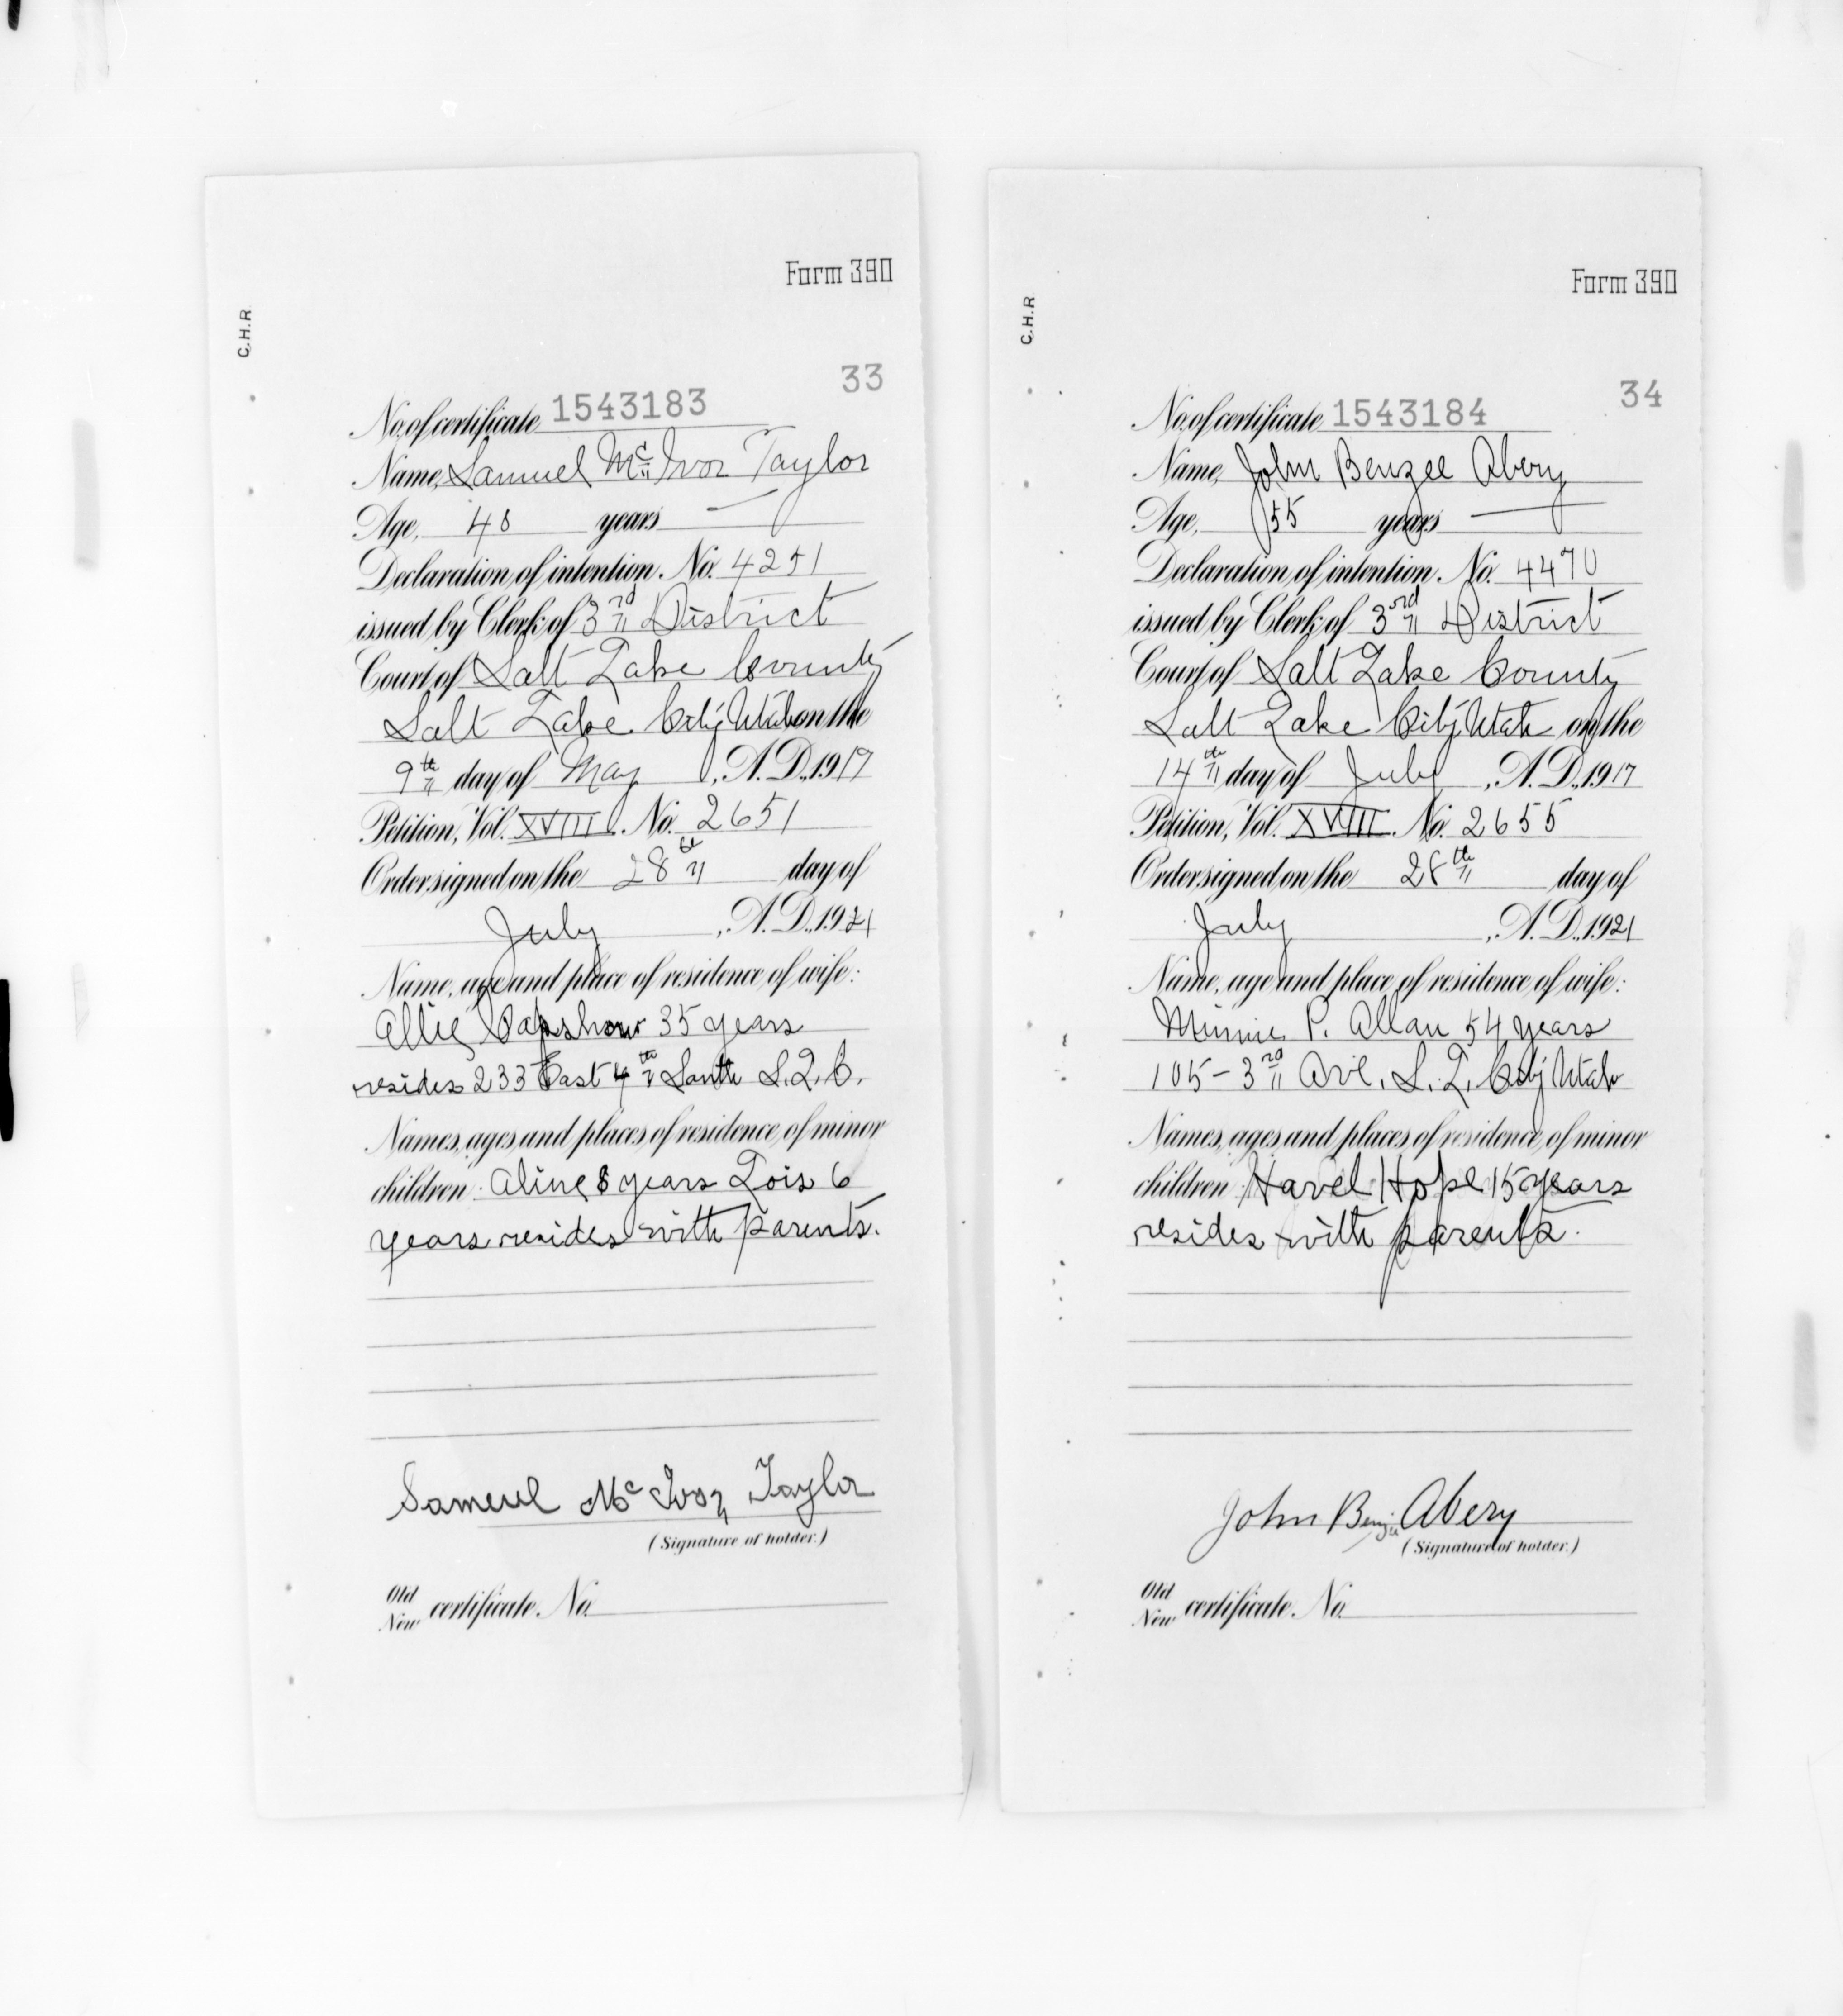 Form 390
C.H.R
33
No. of certificate 1543183
Name, Samuel McIvor Taylor
Age, 48 years —
Declaration of intention, No. 4251
issued by Clerk of 3rd District
Court of Salt Lake County
Salt Lake City Utah on the
9th day of May, A.D., 1917
Petition, Vol. XVIII. No. 2651
Order signed on the 28th day of
July, A.D., 1921
Name, age and place of residence of wife:
Allie Capshow 35 years
resides 233 East 4th South S.L.C.
Names, ages and places of residence of minor
children: Aline 8 years Lois 6
years resides with parents.
Samuel Mc Ivor Taylor
(Signature of holder.)
Old
New certificate No.
Form 390
C.H.R
34
No. of certificate 1543184
Name, John Benzee Abery
Age, 55 years —
Declaration of intention, No. 4470
issued by Clerk of 3rd District
Court of Salt Lake County
Salt Lake City Utah on the
14th day of July, A.D., 1917
Petition, Vol. XVIII. No. 2655
Order signed on the 28th day of
July, A.D., 1921
Name, age and place of residence of wife:
Minnie P. Allan 54 years
105-3rd Ave. S. L. City Utah
Names, ages and places of residence of minor
children: Havel Hope 15 years
resides with parents.
John Benzie Abery
(Signature of holder.)
Old
New certificate No.